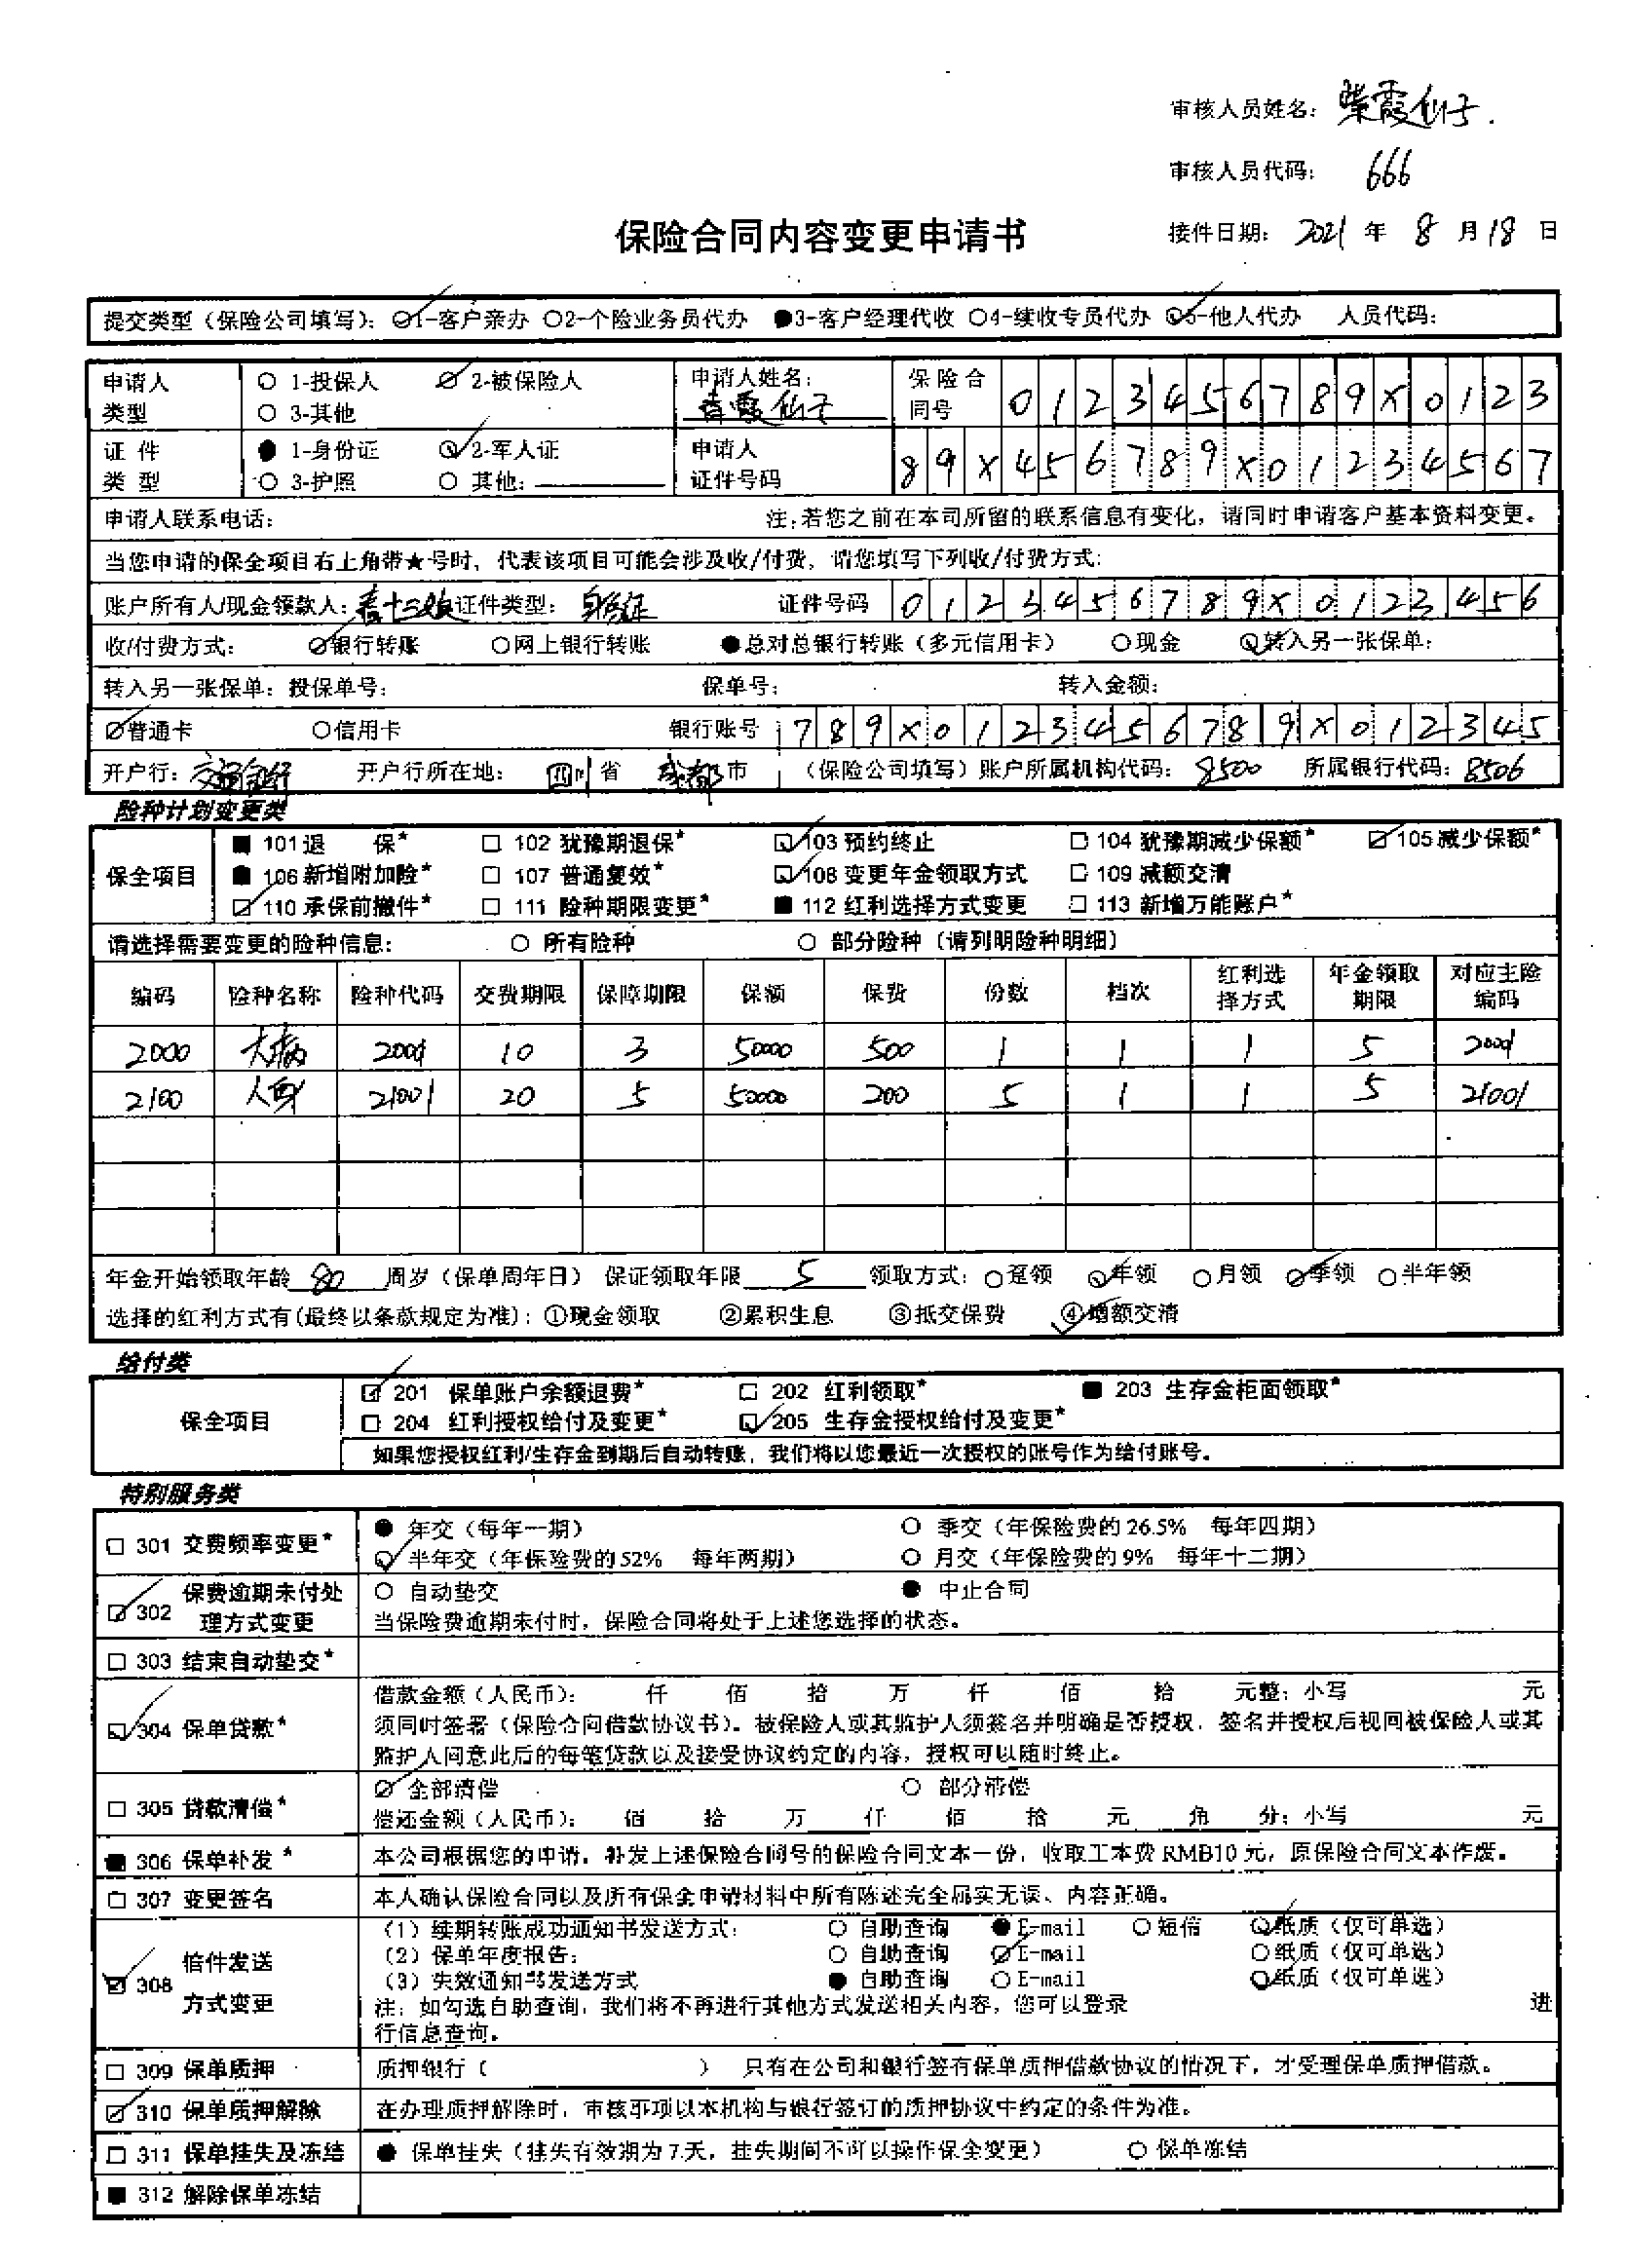 审核人员姓名：紫霞仙子.
审核人员代码：666
保险合同内容变更申请书
接件日期：2021年8月18日
提交类型（保险公司填写）：○1-客户亲办 ○2-个险业务员代办 ●3-客户经理代收 ○4-续收专员代办 ○5-他人代办 人员代码：
申请人类型 ○ 1-投保人 ○ 2-被保险人 ○ 3-其他
申请人姓名：青霞仙子
保险合同号 0123456789X0123
证件类型 ● 1-身份证 ○ 2-军人证 ○ 3-护照 ○ 其他：
申请人证件号码 89X456789X01234567
申请人联系电话： 注：若您之前在本司所留的联系信息有变化，请同时申请客户基本资料变更。
当您申请的保全项目右上角带★号时，代表该项目可能会涉及收/付费，请您填写下列收/付费方式：
账户所有人/现金领款人：春十三娘 证件类型：身份证 证件号码 0123456789X0123456
收/付费方式： ○银行转账 ○网上银行转账 ●总对总银行转账（多元信用卡） ○现金 ○转入另一张保单：
转入另一张保单：投保单号： 保单号： 转入金额：
○普通卡 ○信用卡 银行账号 789X0123456789X012345
开户行：交通银行 开户行所在地：四川省 成都市 （保险公司填写）账户所属机构代码：8500 所属银行代码：8506
险种计划变更类
保全项目
■ 101 退 保* □ 102 犹豫期退保* □ 103 预约终止 □ 104 犹豫期减少保额* □ 105 减少保额*
■ 106 新增附加险* □ 107 普通复效* □ 108 变更年金领取方式 □ 109 减额交清
□ 110 承保前撤件* □ 111 险种期限变更* ■ 112 红利选择方式变更 □ 113 新增万能账户*
请选择需要变更的险种信息： ○ 所有险种 ○ 部分险种（请列明险种明细）
编码 险种名称 险种代码 交费期限 保障期限 保额 保费 份数 档次 红利选择方式 年金领取期限 对应主险编码
2000 大病 2001 10 3 50000 500 1 1 1 5 2001
2100 人身 21001 20 5 50000 200 5 1 1 5 21001
年金开始领取年龄 80 周岁（保单周年日） 保证领取年限 5 领取方式：○趸领 ○年领 ○月领 ○季领 ○半年领
选择的红利方式有(最终以条款规定为准)：①现金领取 ②累积生息 ③抵交保费 ④增额交清
给付类
保全项目
□ 201 保单账户余额退费* □ 202 红利领取* ■ 203 生存金柜面领取*
□ 204 红利授权给付及变更* □ 205 生存金授权给付及变更*
如果您授权红利/生存金到期后自动转账，我们将以您最近一次授权的账号作为给付账号。
特别服务类
□ 301 交费频率变更* ● 年交（每年一期） ○ 季交（年保险费的 26.5% 每年四期）
○ 半年交（年保险费的 52% 每年两期） ○ 月交（年保险费的 9% 每年十二期）
□ 302 保费逾期未付处理方式变更 ○ 自动垫交 ● 中止合同
当保险费逾期未付时，保险合同将处于上述您选择的状态。
□ 303 结束自动垫交*
□ 304 保单贷款* 借款金额（人民币）： 仟 佰 拾 万 仟 佰 拾 元整；小写 元
须同时签署（保险合同借款协议书）。被保险人或其监护人须签名并明确是否授权，签名并授权后视同被保险人或其
监护人同意此后的每笔贷款以及接受协议约定的内容，授权可以随时终止。
□ 305 贷款清偿* ○ 全部清偿 ○ 部分清偿
偿还金额（人民币）： 佰 拾 万 仟 佰 拾 元 角 分；小写 元
■ 306 保单补发* 本公司根据您的申请，补发上述保险合同号的保险合同文本一份，收取工本费 RMB10 元，原保险合同文本作废。
□ 307 变更签名 本人确认保险合同以及所有保全申请材料中所有陈述完全属实无误、内容正确。
□ 308 信件发送方式变更
（1）续期转账成功通知书发送方式： ○ 自助查询 ● E-mail ○ 短信 ○纸质（仅可单选）
（2）保单年度报告： ○ 自助查询 ○ E-mail ○纸质（仅可单选）
（3）失效通知书发送方式 ● 自助查询 ○ E-mail ○纸质（仅可单选）
注：如勾选自助查询，我们将不再进行其他方式发送相关内容，您可以登录 进
行信息查询。
□ 309 保单质押 质押银行（ ） 只有在公司和银行签有保单质押借款协议的情况下，才受理保单质押借款。
□ 310 保单质押解除 在办理质押解除时，审核事项以本机构与银行签订的质押协议中约定的条件为准。
□ 311 保单挂失及冻结 ● 保单挂失（挂失有效期为 7天，挂失期间不可以操作保全变更） ○ 保单冻结
■ 312 解除保单冻结